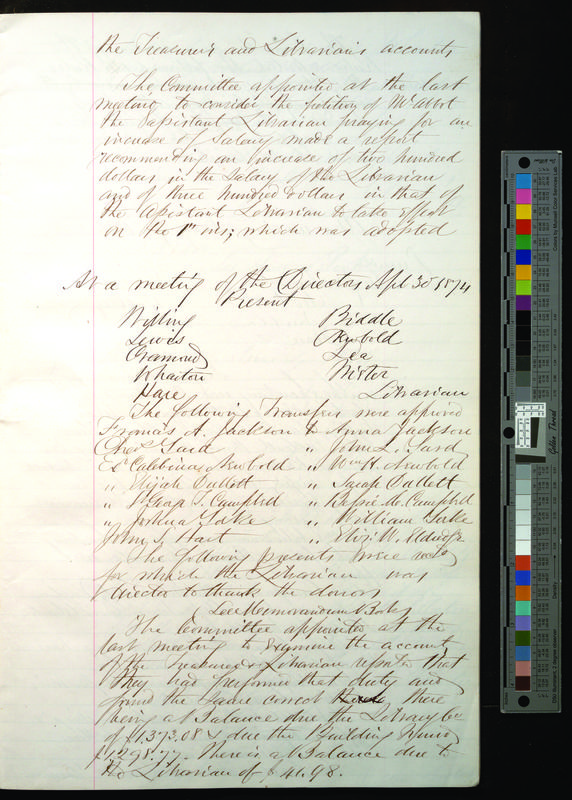 the Treasurer's and Librarian's accounts
The Committee appointed at the last
meeting to consider the petition of Mr Abbot
the Assistant Librarian praying for an
increase of Salary made a report
recommending an increase of two hundred
dollars in the Salary of the Librarian
and of three hundred dollars in that of
the Assistant Librarian to take effect
on the 1st ins; which was adopted
At a meeting of the Directors Apl 30 1874
Present
Willing Biddle
Lewis Newbold
Cramond Lea
Wharton Wister
Hare Librarian
The following Transfers were approved
Thomas A. Jackson to Anna Jackson
Chas Tard " John L. Tard
Es Calebina Newbold " Wm H. Newbold
" Elijah Dallett " Sarah Dallett
" St Geog T. Campbell " Bessie M. Campbell
" Joshua Take " William Take
John S. Hart " Eliz. W.
The following presents were recd
for which the Librarian was
director to thank the donors
(See Memorandum Book)
The Committee appointed at the
last meeting to examine the account
of the Treasurer & Librarian reports that
they had performed that duty and
found the same correct there
being a Balance due the Library Co
of $1,373.08 & due the Building Fund
$1298.77. There is a Balance due to
the Librarian of $41.98.